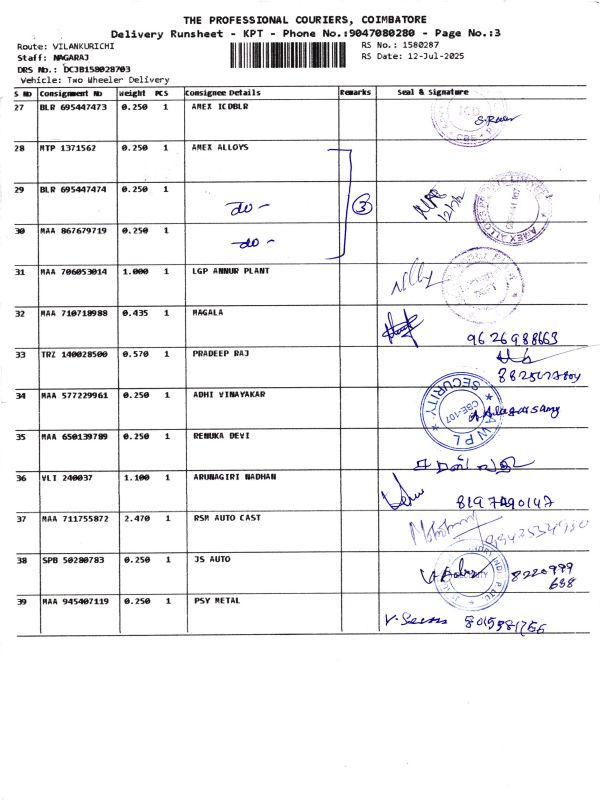 THE PROFESSIONAL COURIERS, COIMBATORE
Delivery Runsheet - KPT - Phone No.:9047080280 - Page No.:3
Route: VILANKURICHI
RS No.: 1580287
Staff: NAGARAJ
RS Date: 12-Jul-2025
DRS No.: DCJB158028703
Vehicle: Two Wheeler Delivery
S No Consignment No Weight PCS Consignee Details Remarks Seal & Signature
27 BLR 695447473 0.250 1 AMEX ICDBLR
28 MTP 1371562 0.250 1 AMEX ALLOYS
29 BLR 695447474 0.250 1 do - 3
30 MAA 867679719 0.250 1 do -
31 MAA 706053014 1.000 1 LGP ANNUR PLANT
32 MAA 710718988 0.435 1 MAGALA 9626988663
33 TRZ 140028500 0.570 1 PRADEEP RAJ
34 MAA 577229961 0.250 1 ADHI VINAYAKAR
SECURITY CBE-107 AWPL
35 MAA 650139789 0.250 1 RENUKA DEVI
36 VLI 240037 1.100 1 ARUNAGIRI NADHAN
37 MAA 711755872 2.470 1 RSM AUTO CAST
38 SPB 50280783 0.250 1 JS AUTO 8220999
638
39 MAA 945407119 0.250 1 PSY METAL